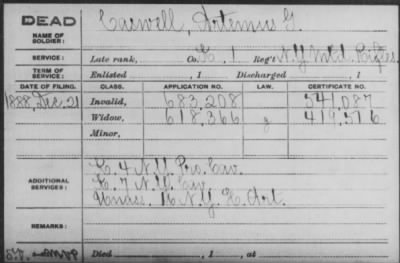 DEAD
NAME OF SOLDIER: Caswell, Artemus G.
SERVICE: Late rank, Co. K. 1 Reg't N.Y. Mtd. Rifles.
TERM OF SERVICE: Enlisted , 1 Discharged , 1
DATE OF FILING. CLASS. APPLICATION NO. LAW. CERTIFICATE NO.
1888, Dec. 21 Invalid, 683,208 541,087
Widow, 618,366 g 419,576
Minor,
ADDITIONAL SERVICES: K. 4 N.Y. Pro. Cav.
K. 7 N.Y. Cav.
16 N.Y. H. Art.
REMARKS:
Died , 1 , at